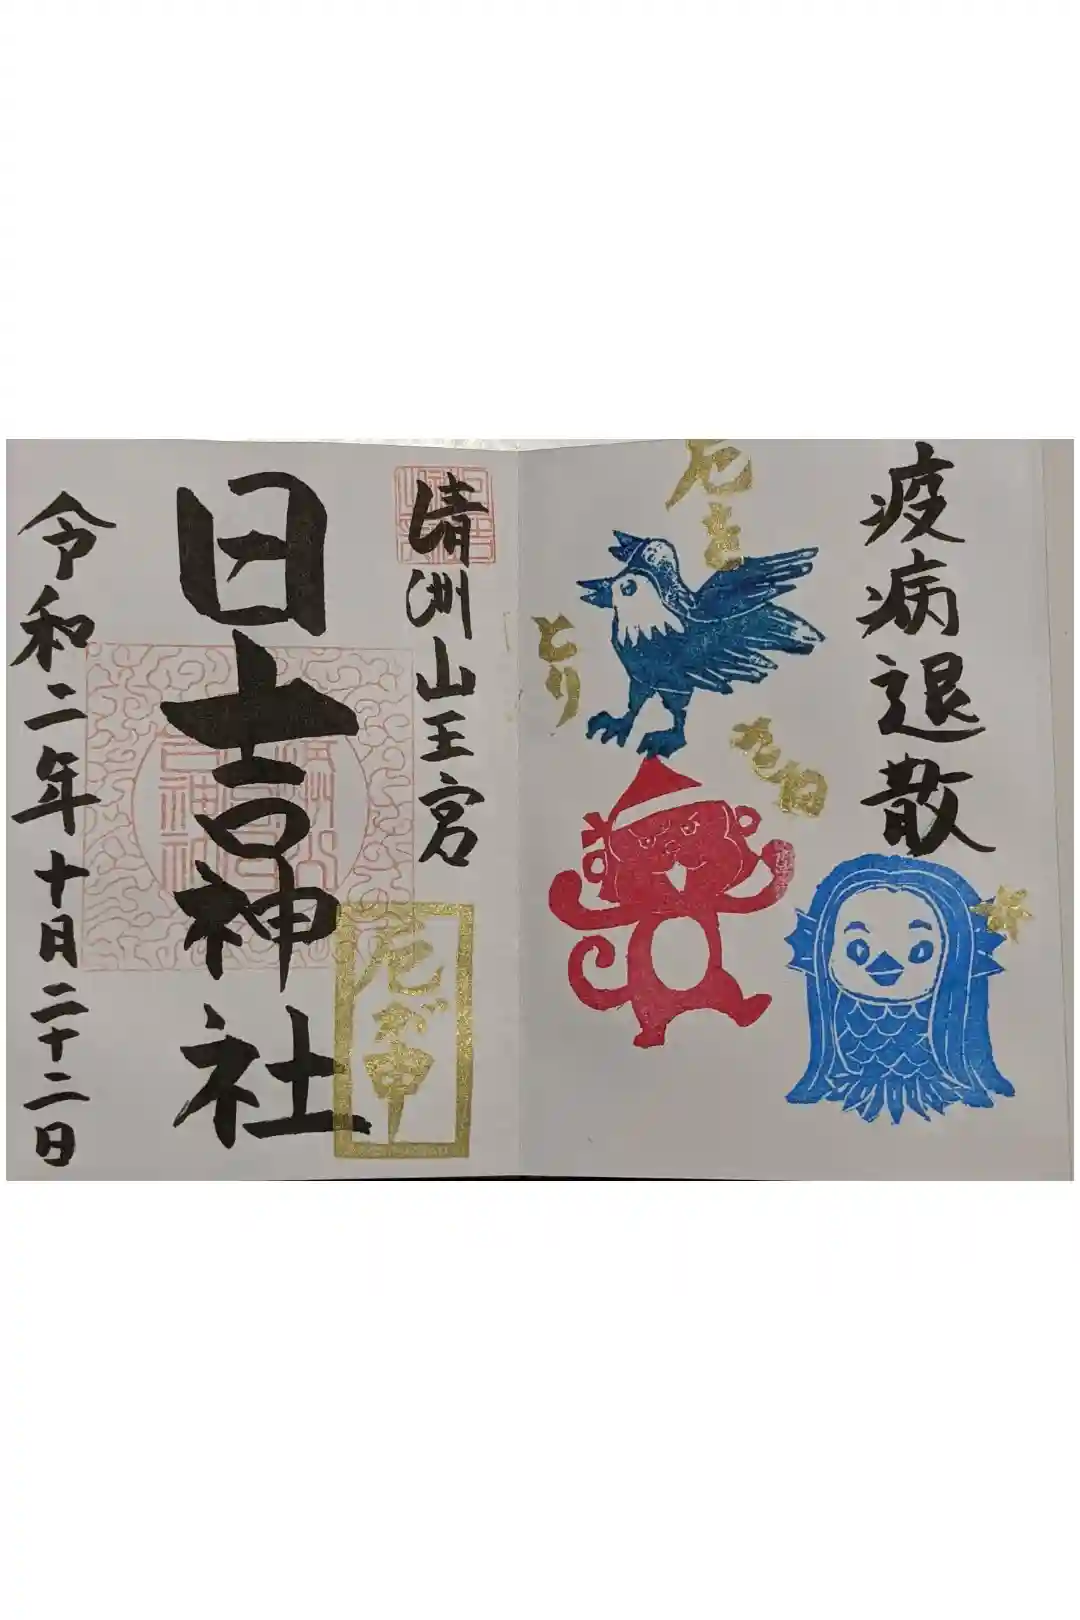 疫病退散
厄を
とり
清洲山王宮
日吉神社
厄が申
令和二年十月二十二日